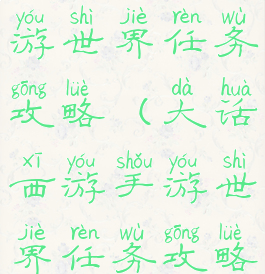 yóu shì jiè rèn wù
游世界任务
gōng lüè dà huà
攻略（大话
xī yóu shǒu yóu shì
西游手游世
jiè rèn wù gōng lüè
界任务攻略